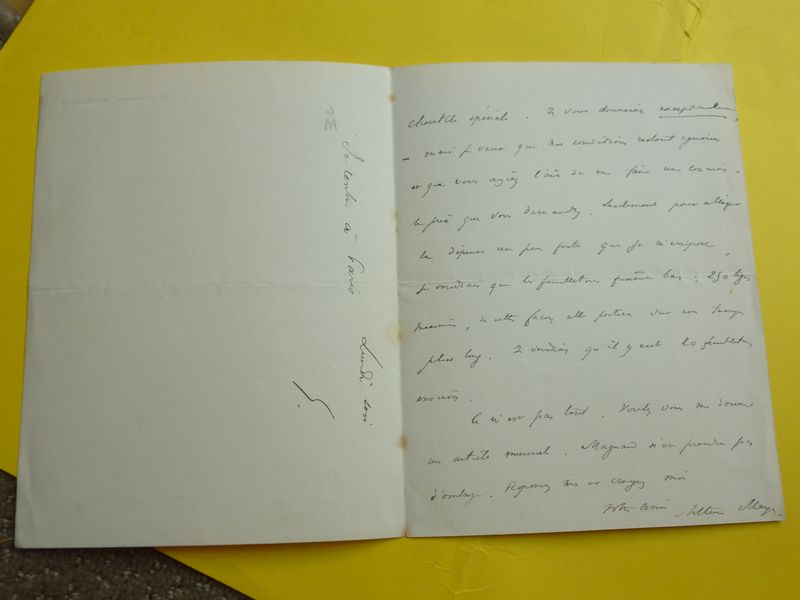 clientèle spéciale. Je vous donnerai
– mais je veux que nos conditions restent ignorées
et que vous ayez l'air de me faire une
le prix que vous demandez. Seulement pour alléger
la dépense un peu forte que je m'impose,
je voudrais que les feuilletons fussent bas : 250 lignes
de cette façon elle portera sur un temps
plus long. Je voudrais qu'il y eut 20 feuilletons
environ.
Ce n'est pas tout. Voulez vous me donner
un article mensuel. Magnard n'en prendra pas
d'ombrage. Répondez moi et croyez moi
votre ami Arthur Meyer
Je rentre à Paris Lundi soir